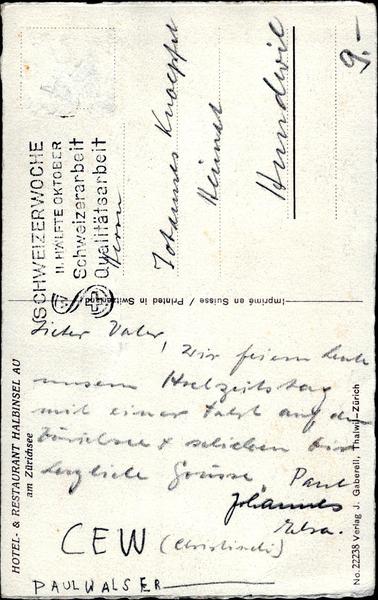 9.-
SCHWEIZERWOCHE
II. HÄLFTE OKTOBER
Schweizerarbeit
Qualitätsarbeit
Herrn
Johannes Knoepfel
Heimat
Hundwil
Imprimé en Suisse / Printed in Switzerland
HOTEL- & RESTAURANT HALBINSEL AU
am Zürichsee
Lieber Vater,
Wir feiern heute
unsern Hochzeitstag
mit einer Fahrt auf dem
Zürichsee & schicken Dir
herzliche Grüsse. Paul
Johannes
Elsa.
CEW (Christineli)
PAUL WALSER
No. 22238 Verlag J. Gaberell, Thalwil-Zürich